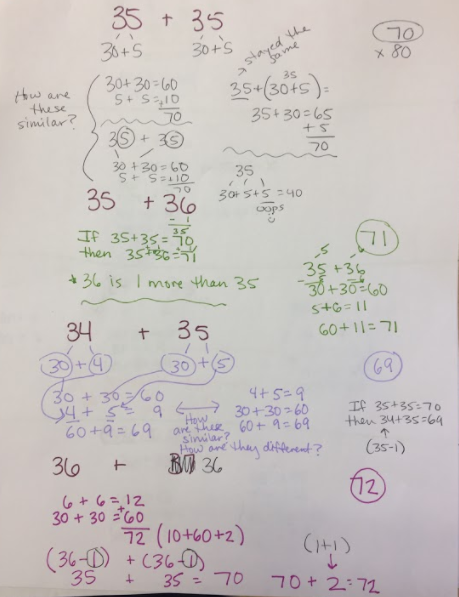 35 + 35
30+5 30+5
70
x 80
How are these similar?
30+30=60
5 + 5=+10
70
35 + 35
30 + 30=60
5 + 5=+10
70
stayed the same
35
35+(30+5)=
35+30=65
+5
70
35
30+5+5=40
oops
35 + 36
- 1
35
If 35+35=70
then 35+36=71
* 36 is 1 more than 35
71
5 6
35+36
30+30=60
5+6=11
60+11=71
34 + 35
30+4 30+5
30 + 30=60
4 + 5 = 9
60+9=69
How are these similar?
How are they different?
4+5=9
30+30=60
60+9=69
69
If 35+35=70
then 34+35=69
(35-1)
36 + 36
72
6 + 6=12
30 + 30=+60
72 (10+60+2)
(36-1) + (36-1)
35 + 35 = 70
(1+1)
70 + 2=72